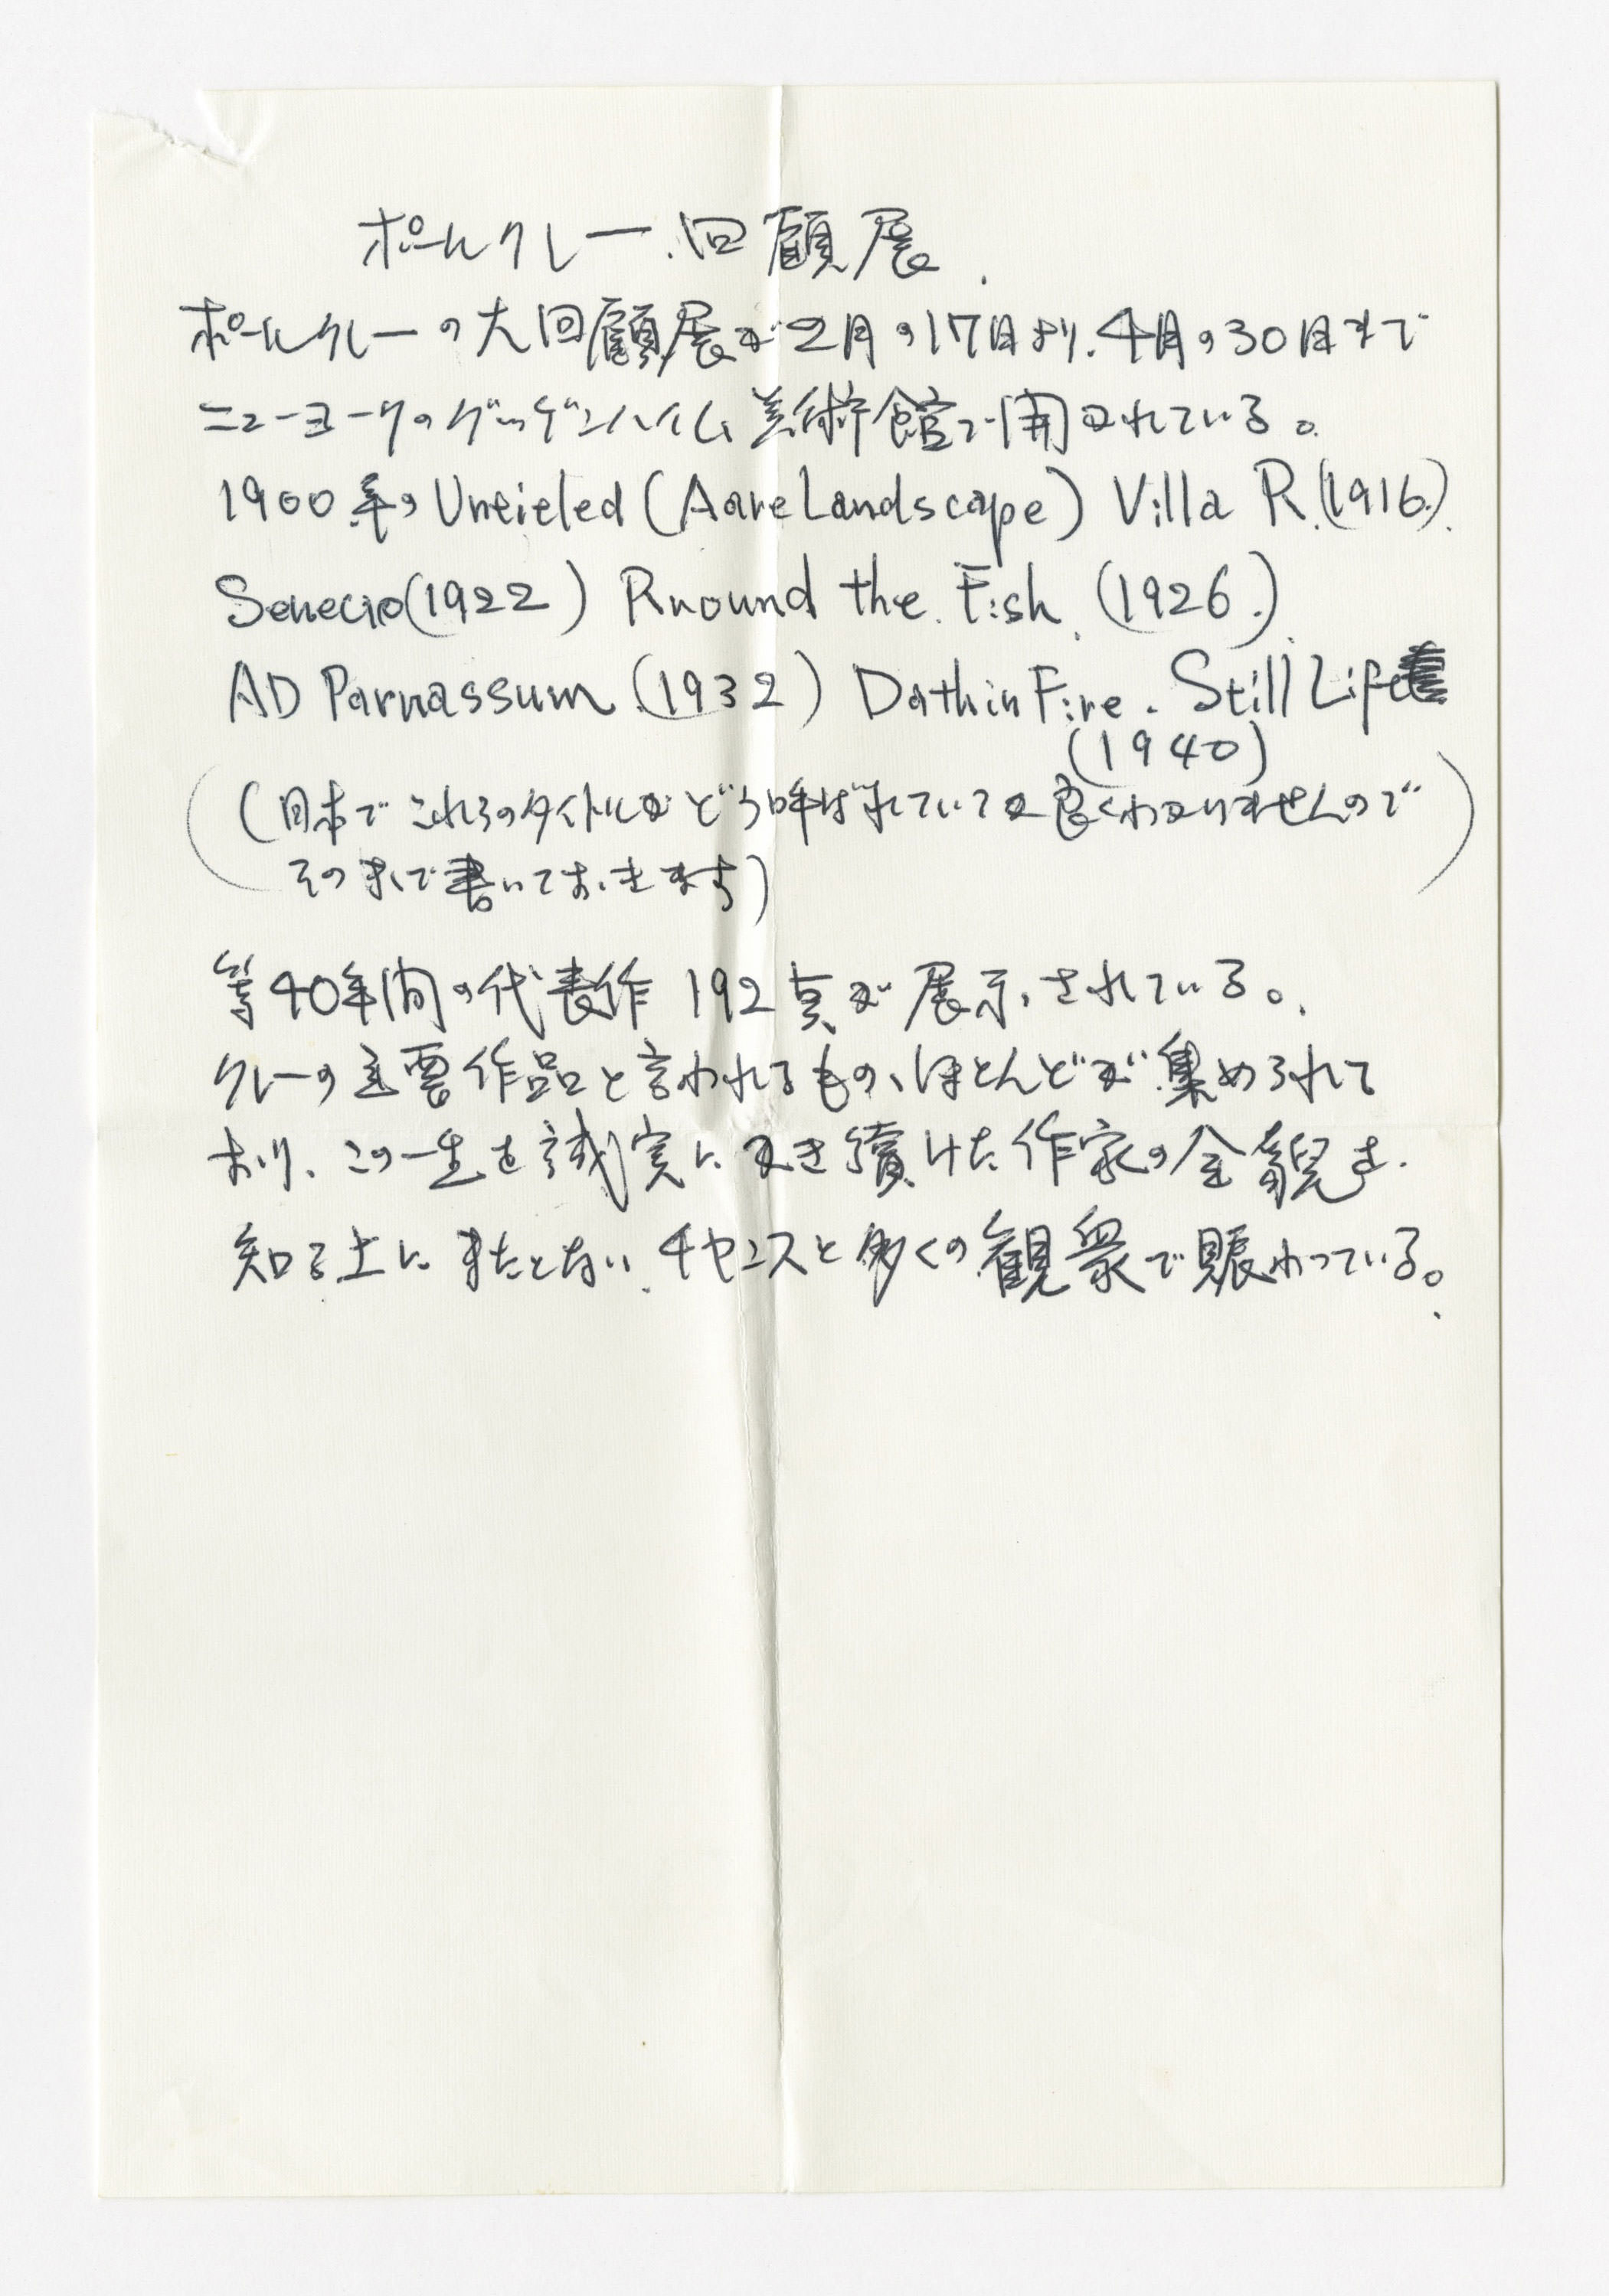 ポールクレー回顧展
ポールクレーの大回顧展が2月の17日より、4月の30日まで
ニューヨークのグッゲンハイム美術館で開かれている。
1900年のUntieled (Aare Landscape) Villa R. (1916)
Senecio (1922) Rround the Fish (1926)
AD Parnassum (1932) Dath in Fire. Still Life
(1940)
(日本でこれらのタイトルがどう呼ばれていてか良くわかりませんので
そのまゝで書いておきます)
等40年間の代表作192点が展示されている。
クレーの主要作品と言われるもの、ほとんどが集められて
おり、この一生を誠実に描き続けた作家の全貌を
知る上にまたとないチャンスと多くの観衆で賑わっている。